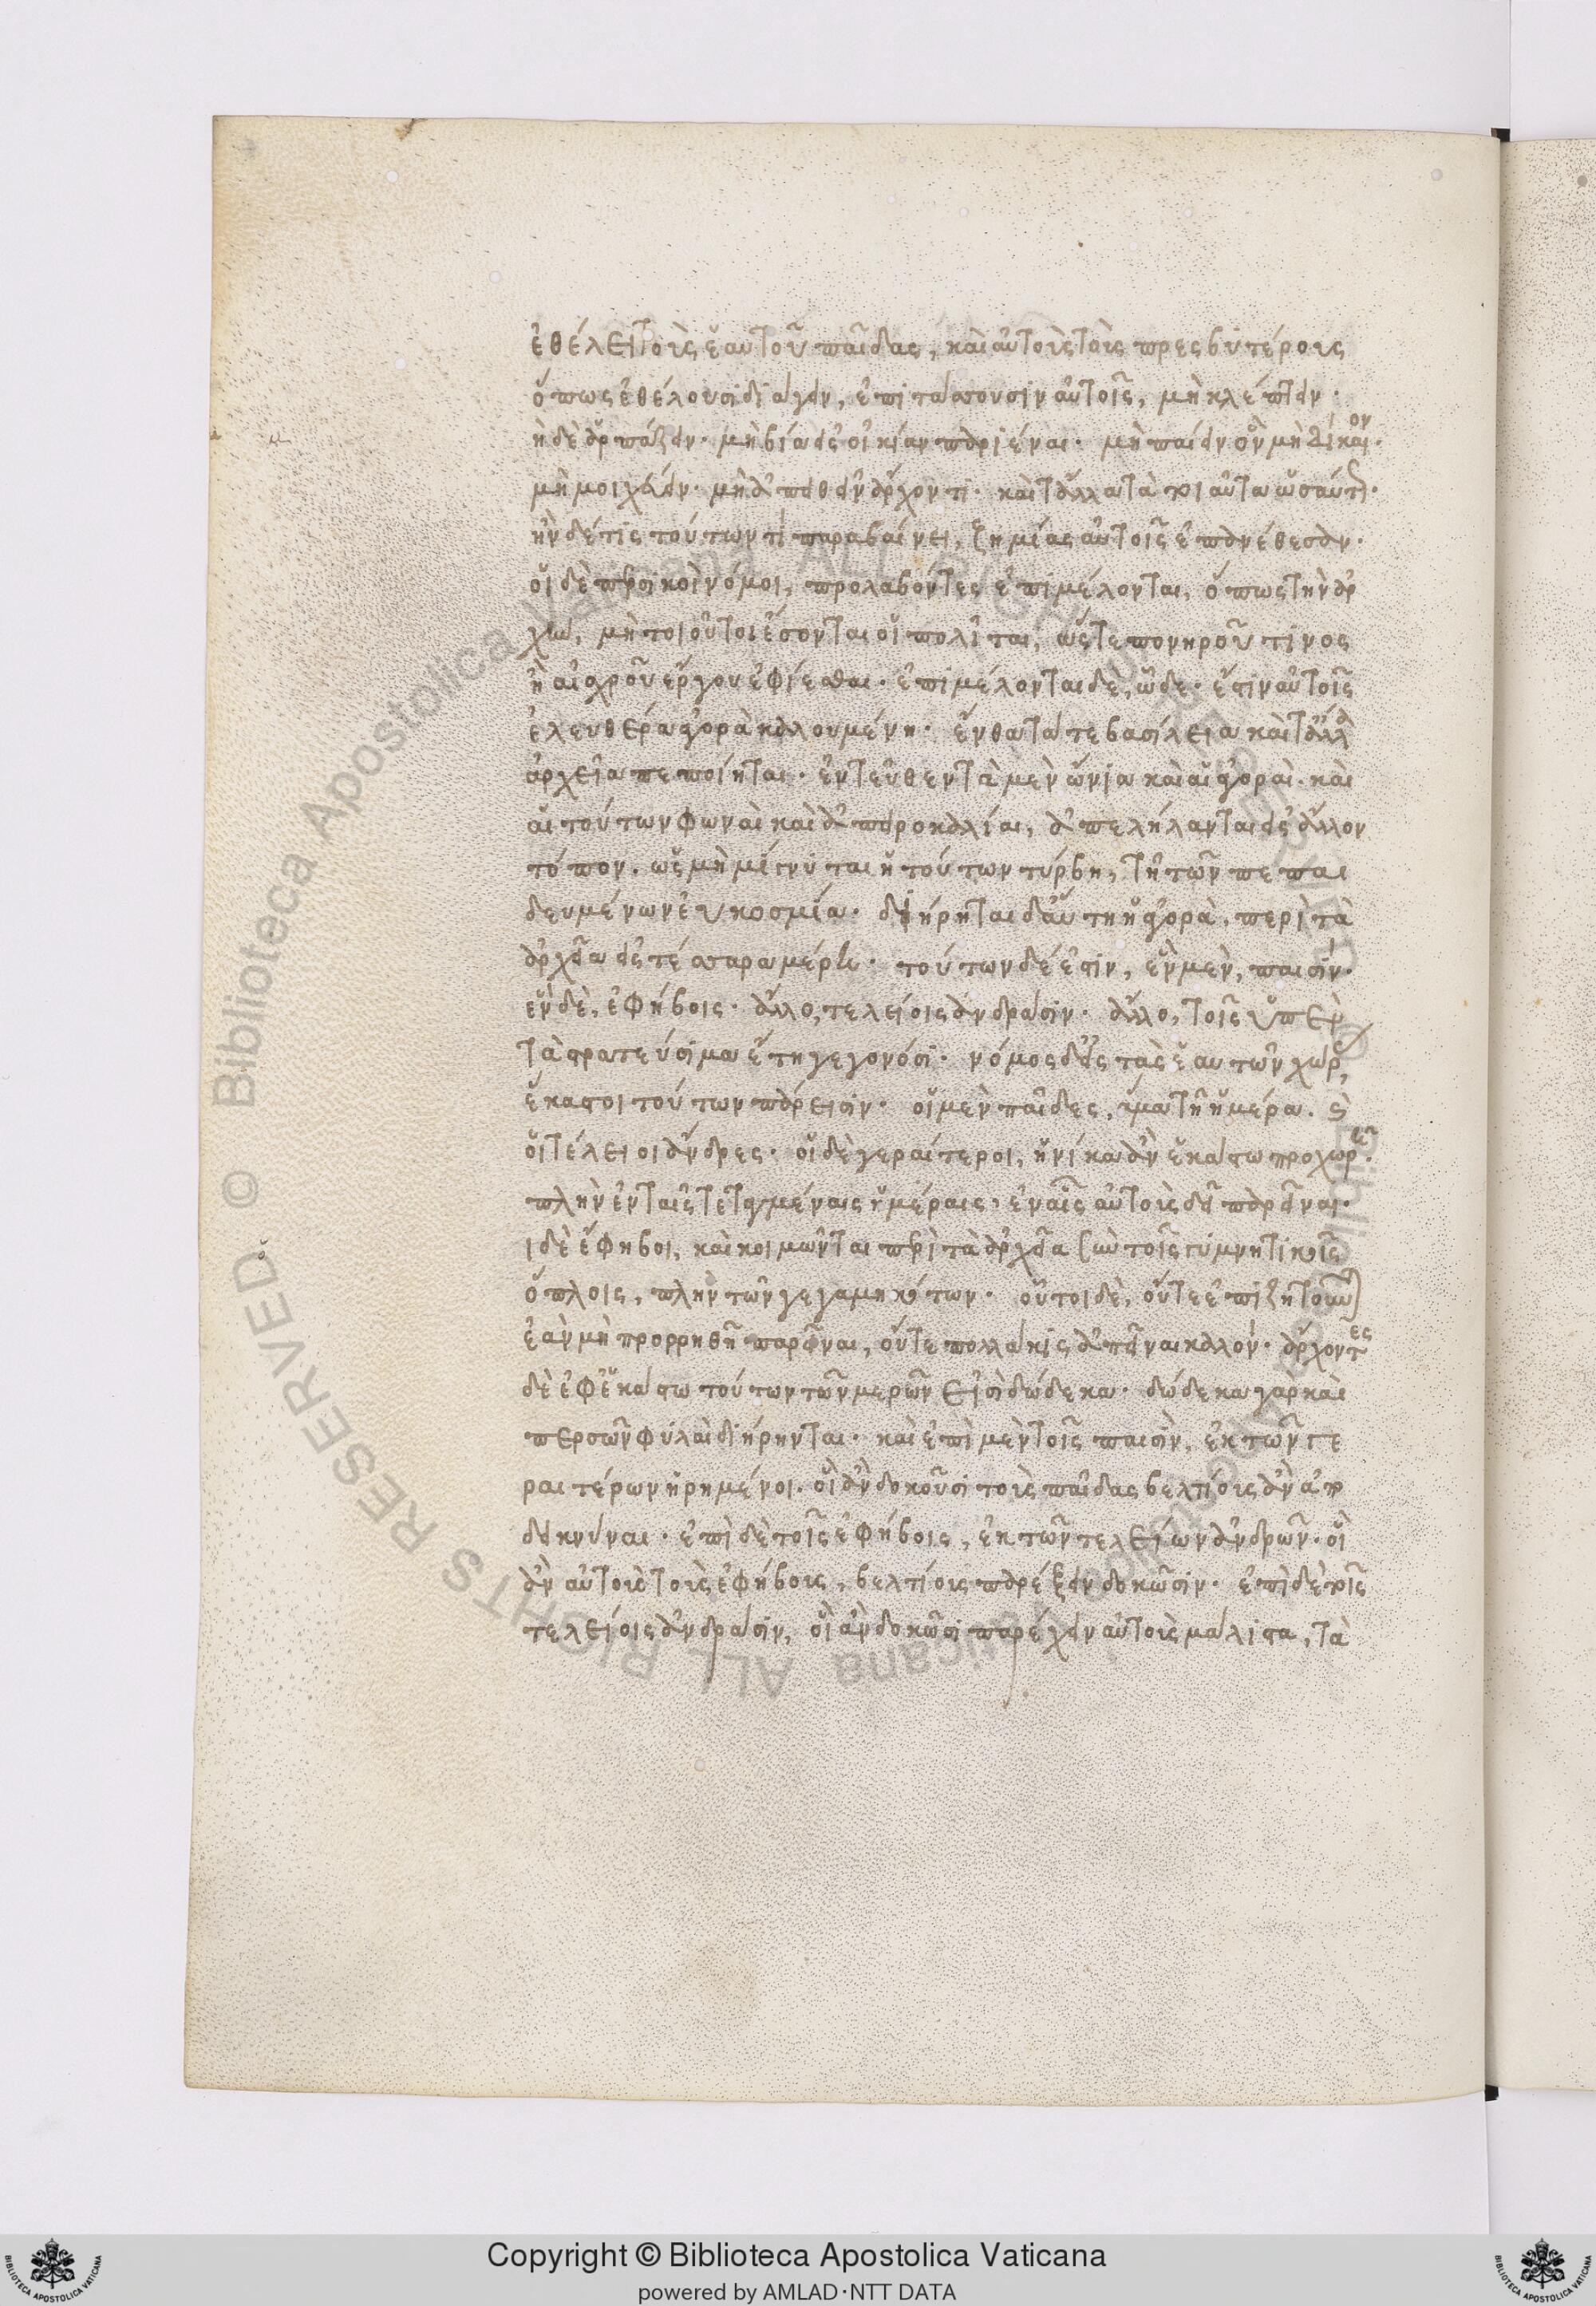 ἐθέλει τοὺς ἑαυτοῦ παῖδας, καὶ αὐτοὺς τοὺς πρεσβυτέρους
ὅπως ἐθέλουσι διάγειν, ἔπιτα προστ αὐτοῖς, μὴ κλέπτειν.
ἠδὲ ἁρπάζειν. μὴ βία εἰς οἰκίαν παριέναι. μὴ παίειν ὃν μὴ δίκαιον.
μὴ μοιχᾶειν. μὴ ἀπειθεῖν ἄρχοντι. καὶ τἄλλα τὰ τοιαῦτα ὡσαύτως.
ἢν δέ τις τούτων τι παραβαίνει, ζημίας αὐτοῖς ἐπανέθεσαν.
οἱ δὲ περσικοὶ νόμοι, προλαβόντες ἐπιμέλονται, ὅπως τὴν ἀρ
χὴν, μὴ τοιοῦτοι ἔσονται οἱ πολῖται, ὥστε πονηροῦ τινος
ἢ αἰσχροῦ ἔργου ἐφίεσθαι. ἐπιμέλονται δὲ, ὧδε. ἔστιν αὐτοῖς
ἐλευθέρα ἀγορὰ καλουμένη. ἔνθα τά τε βασίλεια καὶ τἄλλα
ἀρχεῖα πεποίηται. ἐντεῦθεν τὰ μὲν ὤνια καὶ οἱ ἀγοραῖ. καὶ
αἱ τούτων φωναὶ καὶ ἀπειροκαλίαι, ἀπελήλανται εἰς ἄλλον
τόπον. ὡς μὴ μίγνυται ἡ τούτων τύρβη, τῆ τῶν πεπαι
δευμένων εὐκοσμία. διήρηται δ' αὕτη ἡ ἀγορὰ. περὶ τὰ
ἀρχεῖα εἰς τέσσαρα μέρη. τούτων δέ ἐστιν, ἓν μὲν, παισίν.
ἓν δὲ, ἐφήβοις. ἄλλο, τελείοις ἀνδράσιν. ἄλλο, τοῖς ὑπὲρ
τὰ στρατεύσιμα ἔτη γεγονόσι. νόμος δ' εἰς τὰς ἑαυτῶν χώρας,
ἕκαστοι τούτων πάρεισιν. οἱ μὲν παῖδες, ἅμα τῆ ἡμέρα. καὶ
οἱ τέλειοι ἄνδρες. οἱ δὲ γεραίτεροι, ἡνίκα ἂν ἑκάστω προχωρεῖ.
πλὴν ἐν ταῖς τεταγμέναις ἡμέραις, ἐν αἷς αὐτοὺς δεῖ παρεῖναι.
ι δὲ ἔφηβοι, καὶ κοιμῶνται περὶ τὰ ἀρχεῖα σὺν τοῖς γυμνητικοῖς
ὅπλοις, πλὴν τῶν γεγαμηκότων. οὗτοι δὲ, οὔτε ἐπιζητοῦνται
ἐὰν μὴ προρρηθῆ παρεῖναι, οὔτε πολλάκις ἀπεῖναι καλόν. ἄρχοντες
δὲ ἐφ' ἑκάστω τούτων τῶν μερῶν εἰσὶ δώδεκα. δώδεκα γὰρ καὶ
περσῶν φυλαὶ διήρηνται. καὶ ἐπὶ μὲν τοῖς παισὶν, ἐκ τῶν γε
ραιτέρων ἡρημένοι. οἳ ἂν δοκοῦσι τοὺς παῖδας βελτίους ἂν ἀπο
δεικνύναι. ἐπὶ δὲ τοῖς ἐφήβοις, ἐκ τῶν τελείων ἀνδρῶν. οἳ
ἂν αὐτοὺς τοὺς ἐφήβους, βελτίους παρέξειν δοκῶσιν. ἐπὶ δὲ τοῖς
τελείοις ἀνδράσιν, οἳ ἂν δοκῶσι παρέχειν αὐτοὺς μάλιστα, τὰ
© Biblioteca Apostolica Vaticana ALL RIGHTS RESERVED
© Biblioteca Apostolica Vaticana ALL RIGHTS RESERVED
Copyright © Biblioteca Apostolica Vaticana
powered by AMLAD·NTT DATA